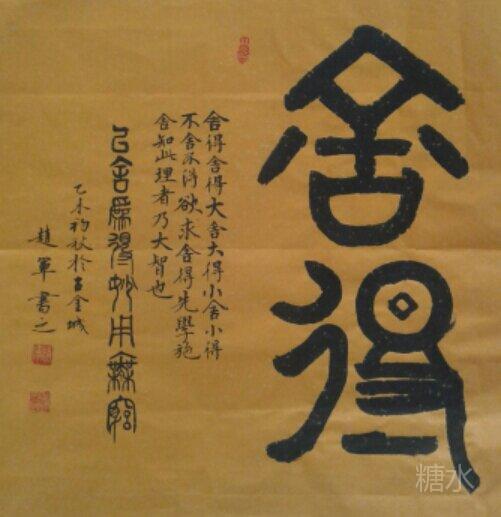 舍得
舍得舍得大舍大得小舍小得
不舍不得欲求舍得先學施
舍知此理者乃大智也
以舍為得妙用無窮
乙未初秋於古金城
趙軍書之
糖水